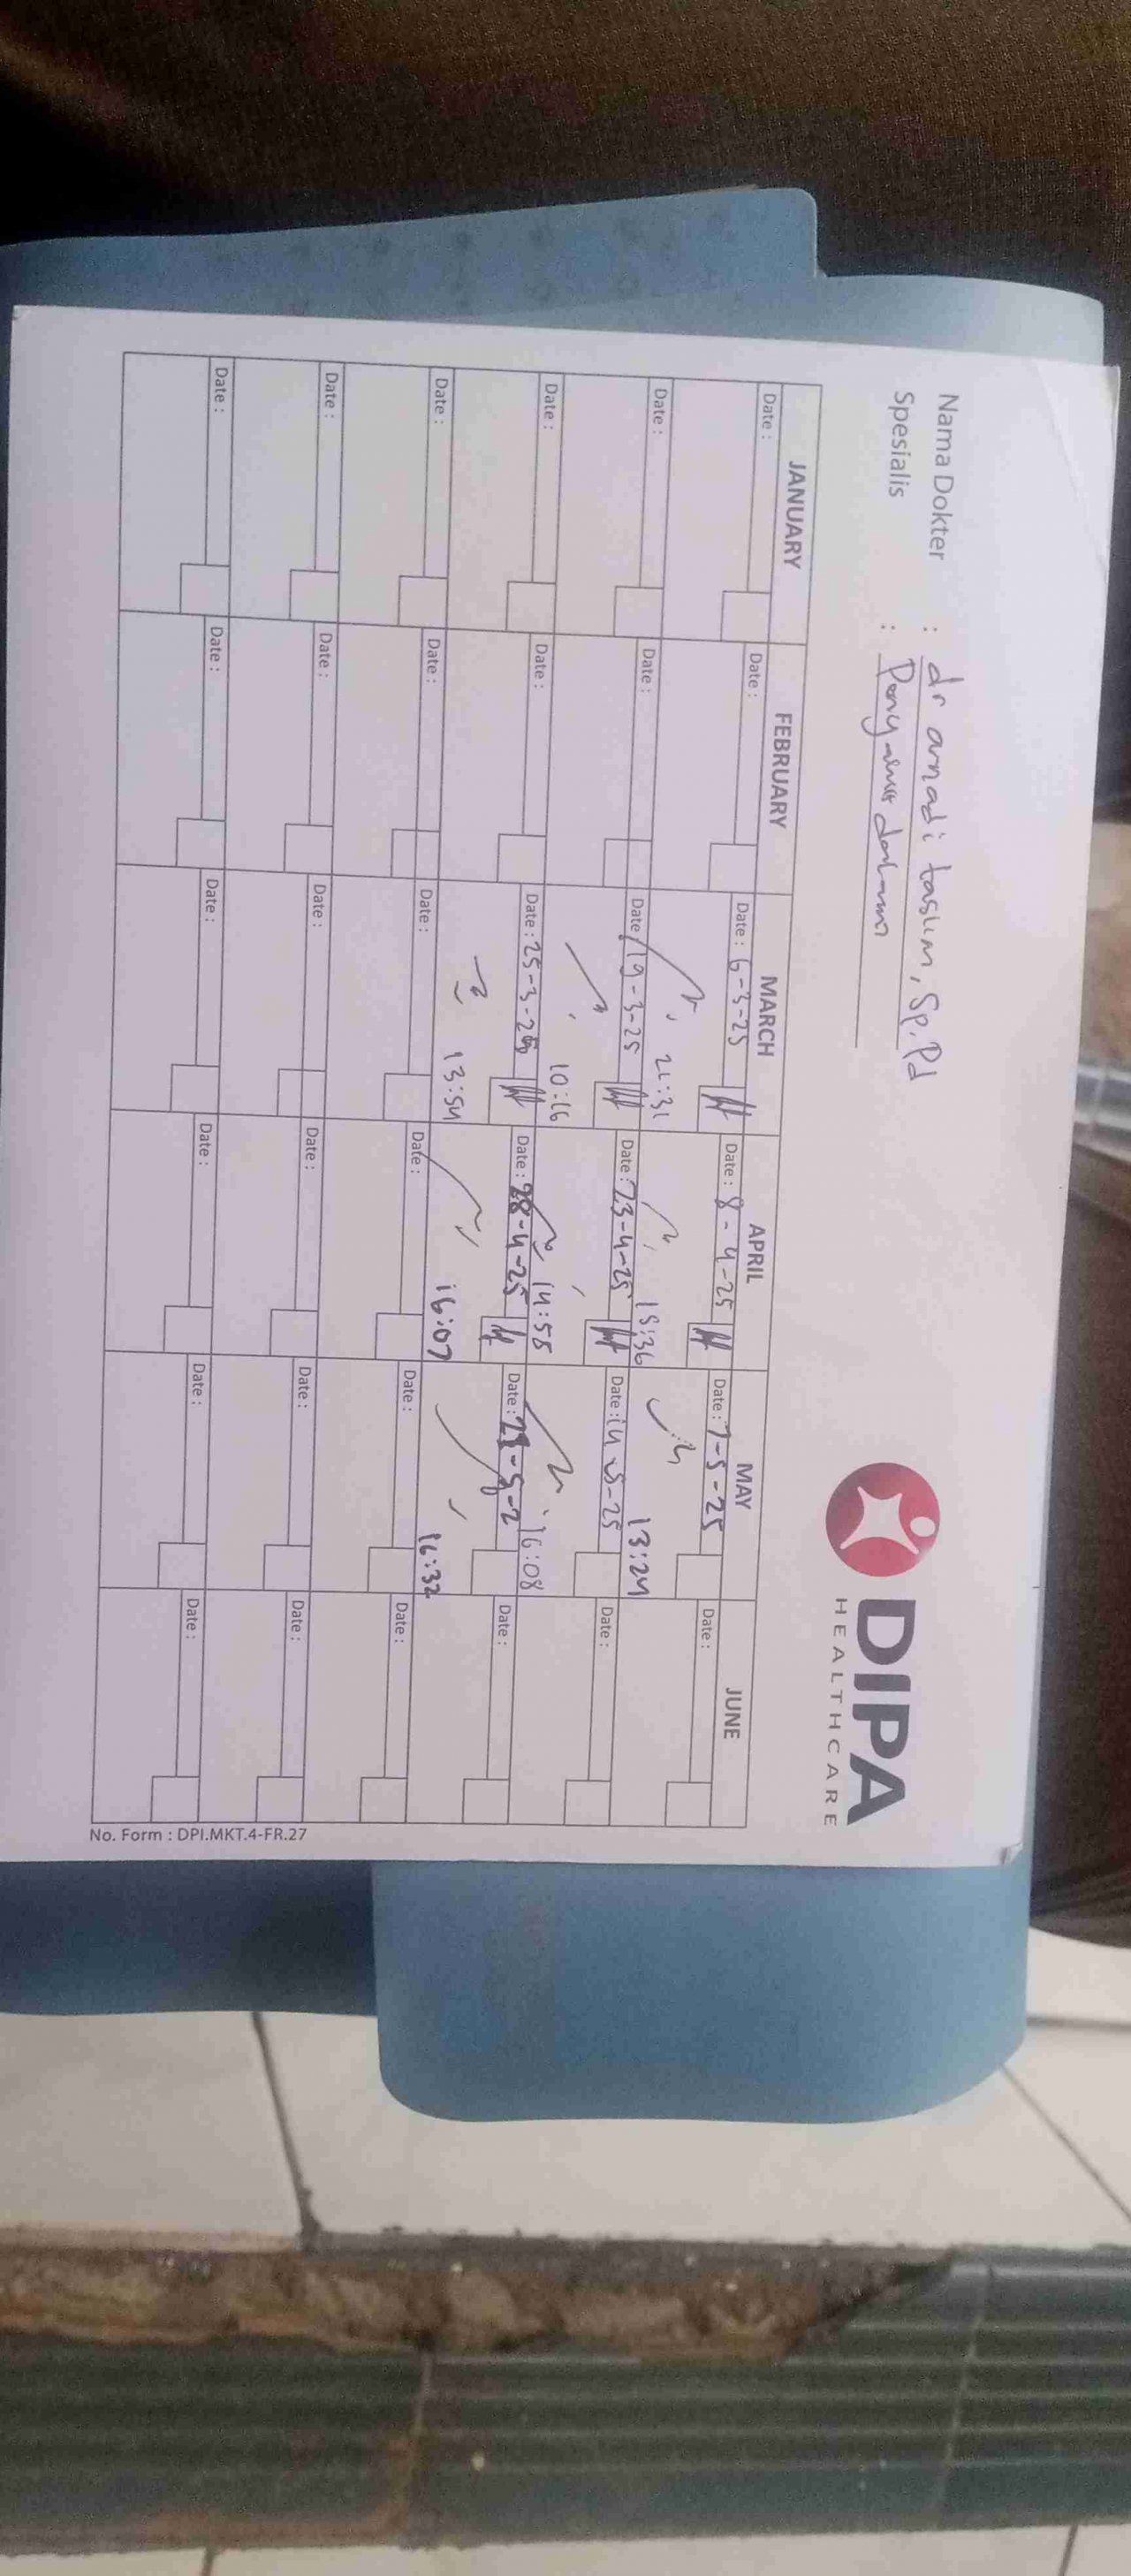 Nama Dokter : dr arnadi taslim, Sp.Pd
Spesialis : Penyakit dalam
DIPA
HEALTHCARE
JANUARY FEBRUARY MARCH APRIL MAY JUNE
Date : Date : Date : 6-3-25 Date : 8-4-25 Date : 7-5-25 Date :
21:31 15:36 13:24
Date : Date : Date : 19-3-25 Date : 23-4-25 Date : 14-5-25 Date :
10:16 14:58 16:08
Date : Date : Date : 25-3-25 Date : 28-4-25 Date : 28-5-2 Date :
13:54 16:07 16:32
Date : Date : Date : Date : Date : Date :
Date : Date : Date : Date : Date : Date :
Date : Date : Date : Date : Date : Date :
No. Form : DPI.MKT.4-FR.27